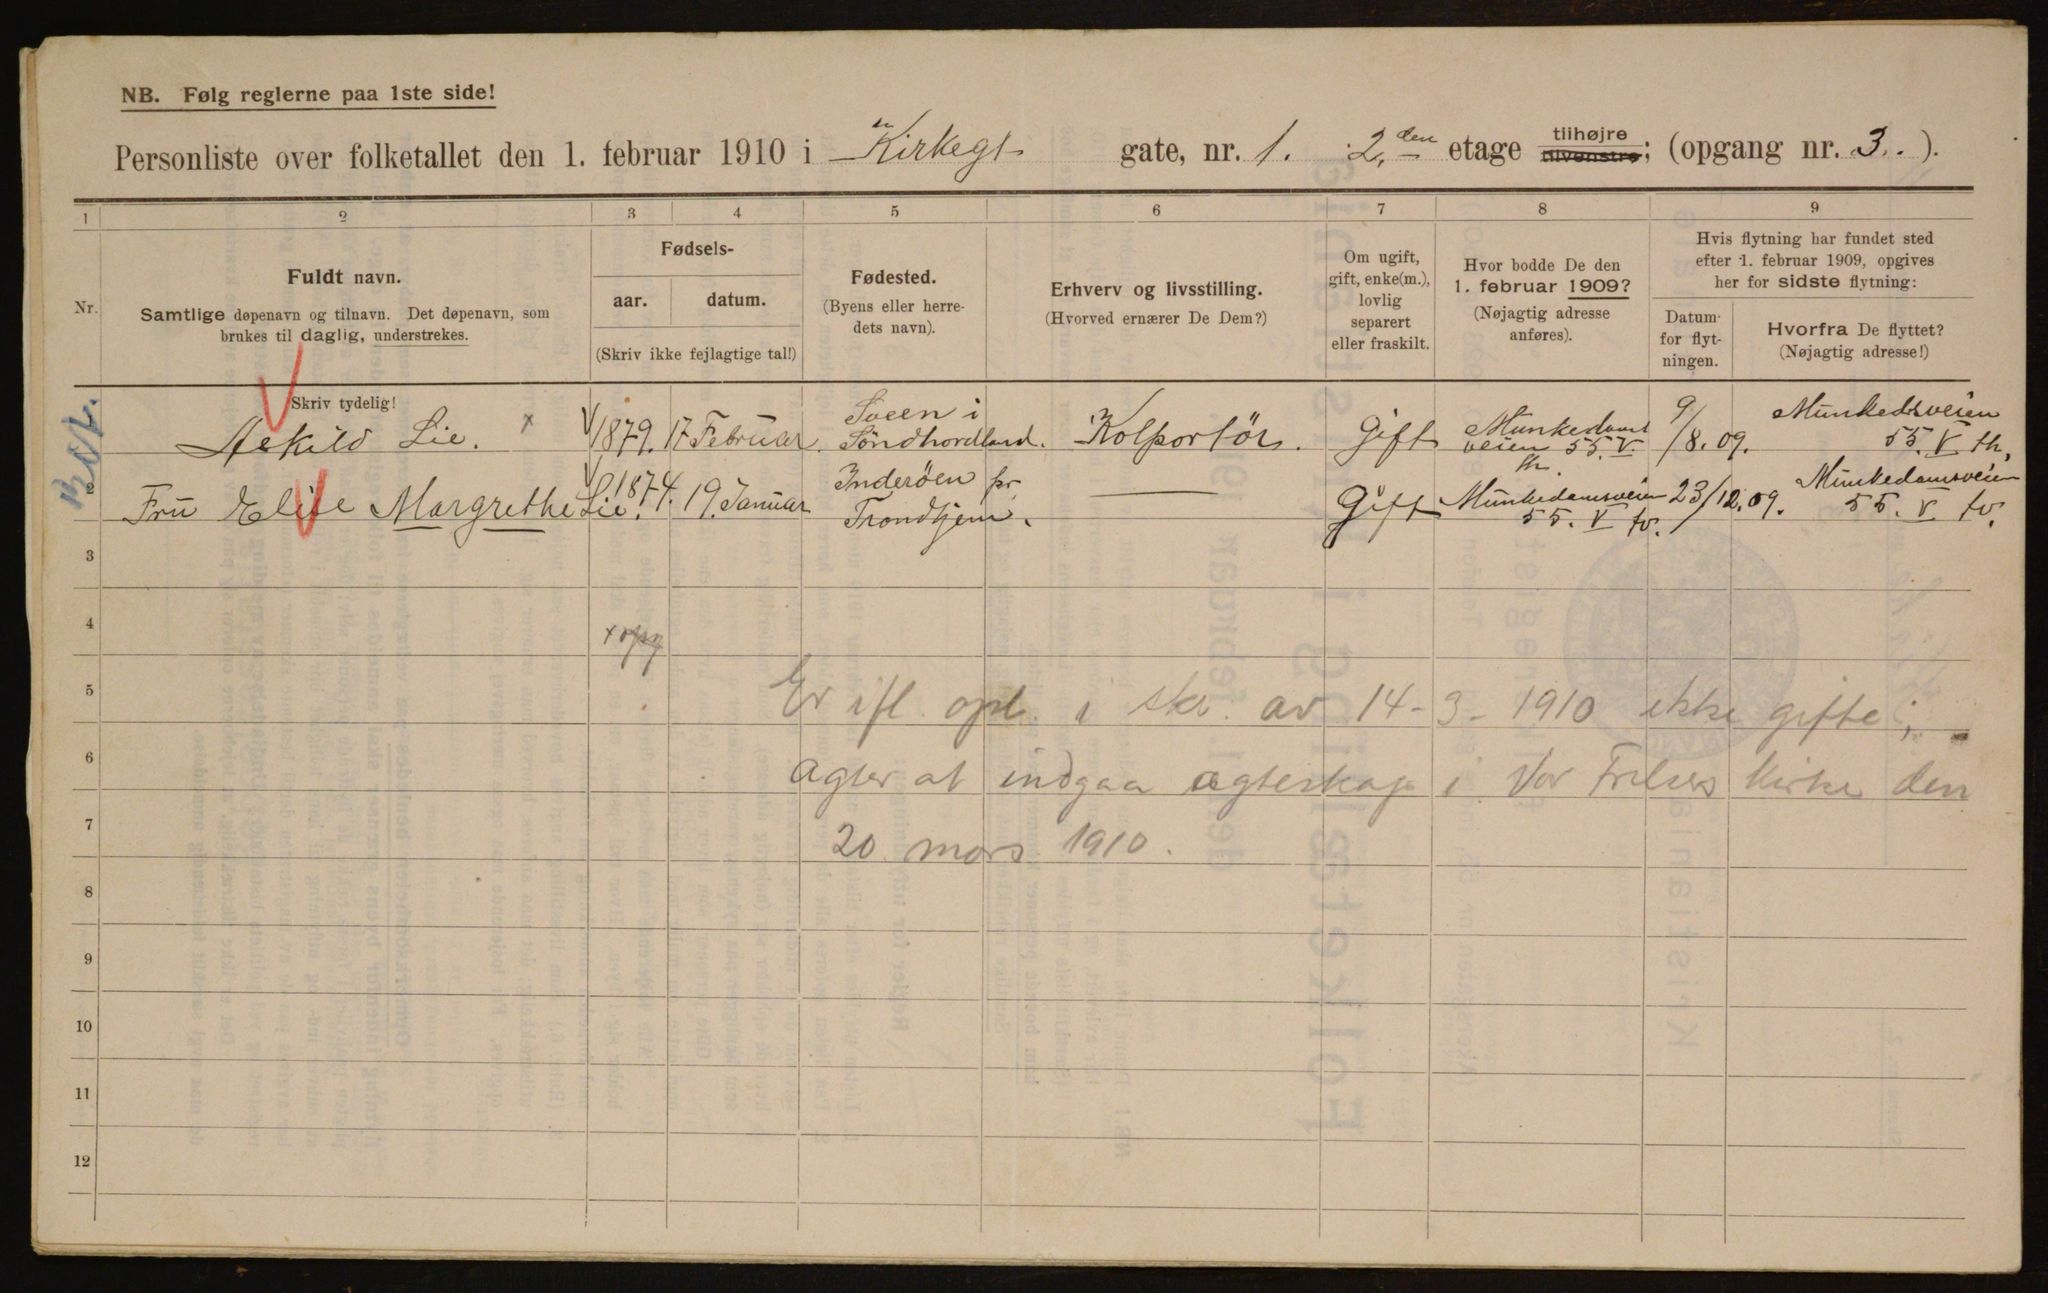 NB. Følg reglerne paa 1ste side!
Personliste over folketallet den 1. februar 1910 i Kirkegt gate, nr. 1. 2.den etage tilhøjre tilvenstre; (opgang nr. 3. ).
1 2 3 4 5 6 7 8 9
Nr.
Fuldt navn.
Samtlige døpenavn og tilnavn. Det døpenavn, som
brukes til daglig, understrekes.
Skriv tydelig!
Fødsels-
aar. datum.
(Skriv ikke fejlagtige tal!)
Fødested.
(Byens eller herre-
dets navn).
Erhverv og livsstilling.
(Hvorved ernærer De Dem?)
Om ugift,
gift, enke(m.),
lovlig
separert
eller fraskilt.
Hvor bodde De den
1. februar 1909?
(Nøjagtig adresse
anføres).
Hvis flytning har fundet sted
efter 1. februar 1909, opgives
her for sidste flytning:
Datum
for flyt-
ningen.
Hvorfra De flyttet?
(Nøjagtig adresse!)
Askild Lie. x 1879. 17 Februar.
Sveen i
Söndhordland.
Kolportör. Gift
Munkedams
veien 55. V.
th.
9/8. 09.
Munkedsveien
55. V th,
2 Frü Elise Margrethe Lie. 1874. 19. Januar
Inderöen pr
Trondhjem.
Gift
Munkedamsveien
55. V tv.
23/12. 09.
Munkedamsveien
55. V tv.
3
4
5
Er ifl. opl. i skr. av 14-3-1910 ikke gifte;
6
Agter at indgaa ægteskap i Vor Frelsers Kirke den
7
20 mars 1910.
8
9
10
11
12